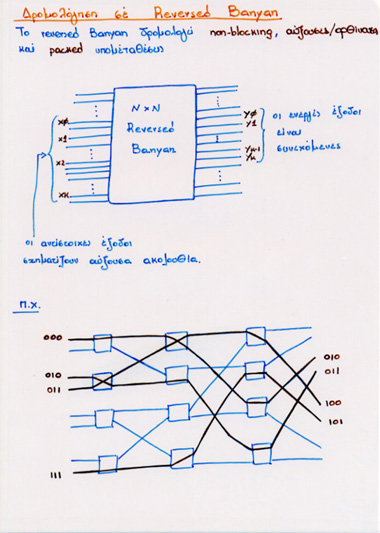 Δρομολόγηση σε Reversed Banyan
Το reversed Banyan δρομολογεί non-blocking, αύξουσες/φθίνουσες
και packed υπομεταθέσεις
x0
x1
x2
xk
N x N
Reversed
Banyan
y0
y1
yk-1
yk
οι ενεργές έξοδοι
είναι
συνεχόμενες
οι αντίστοιχες έξοδοι
σχηματίζουν αύξουσα ακολουθία.
π.χ.
000
010
011
111
010
011
100
101